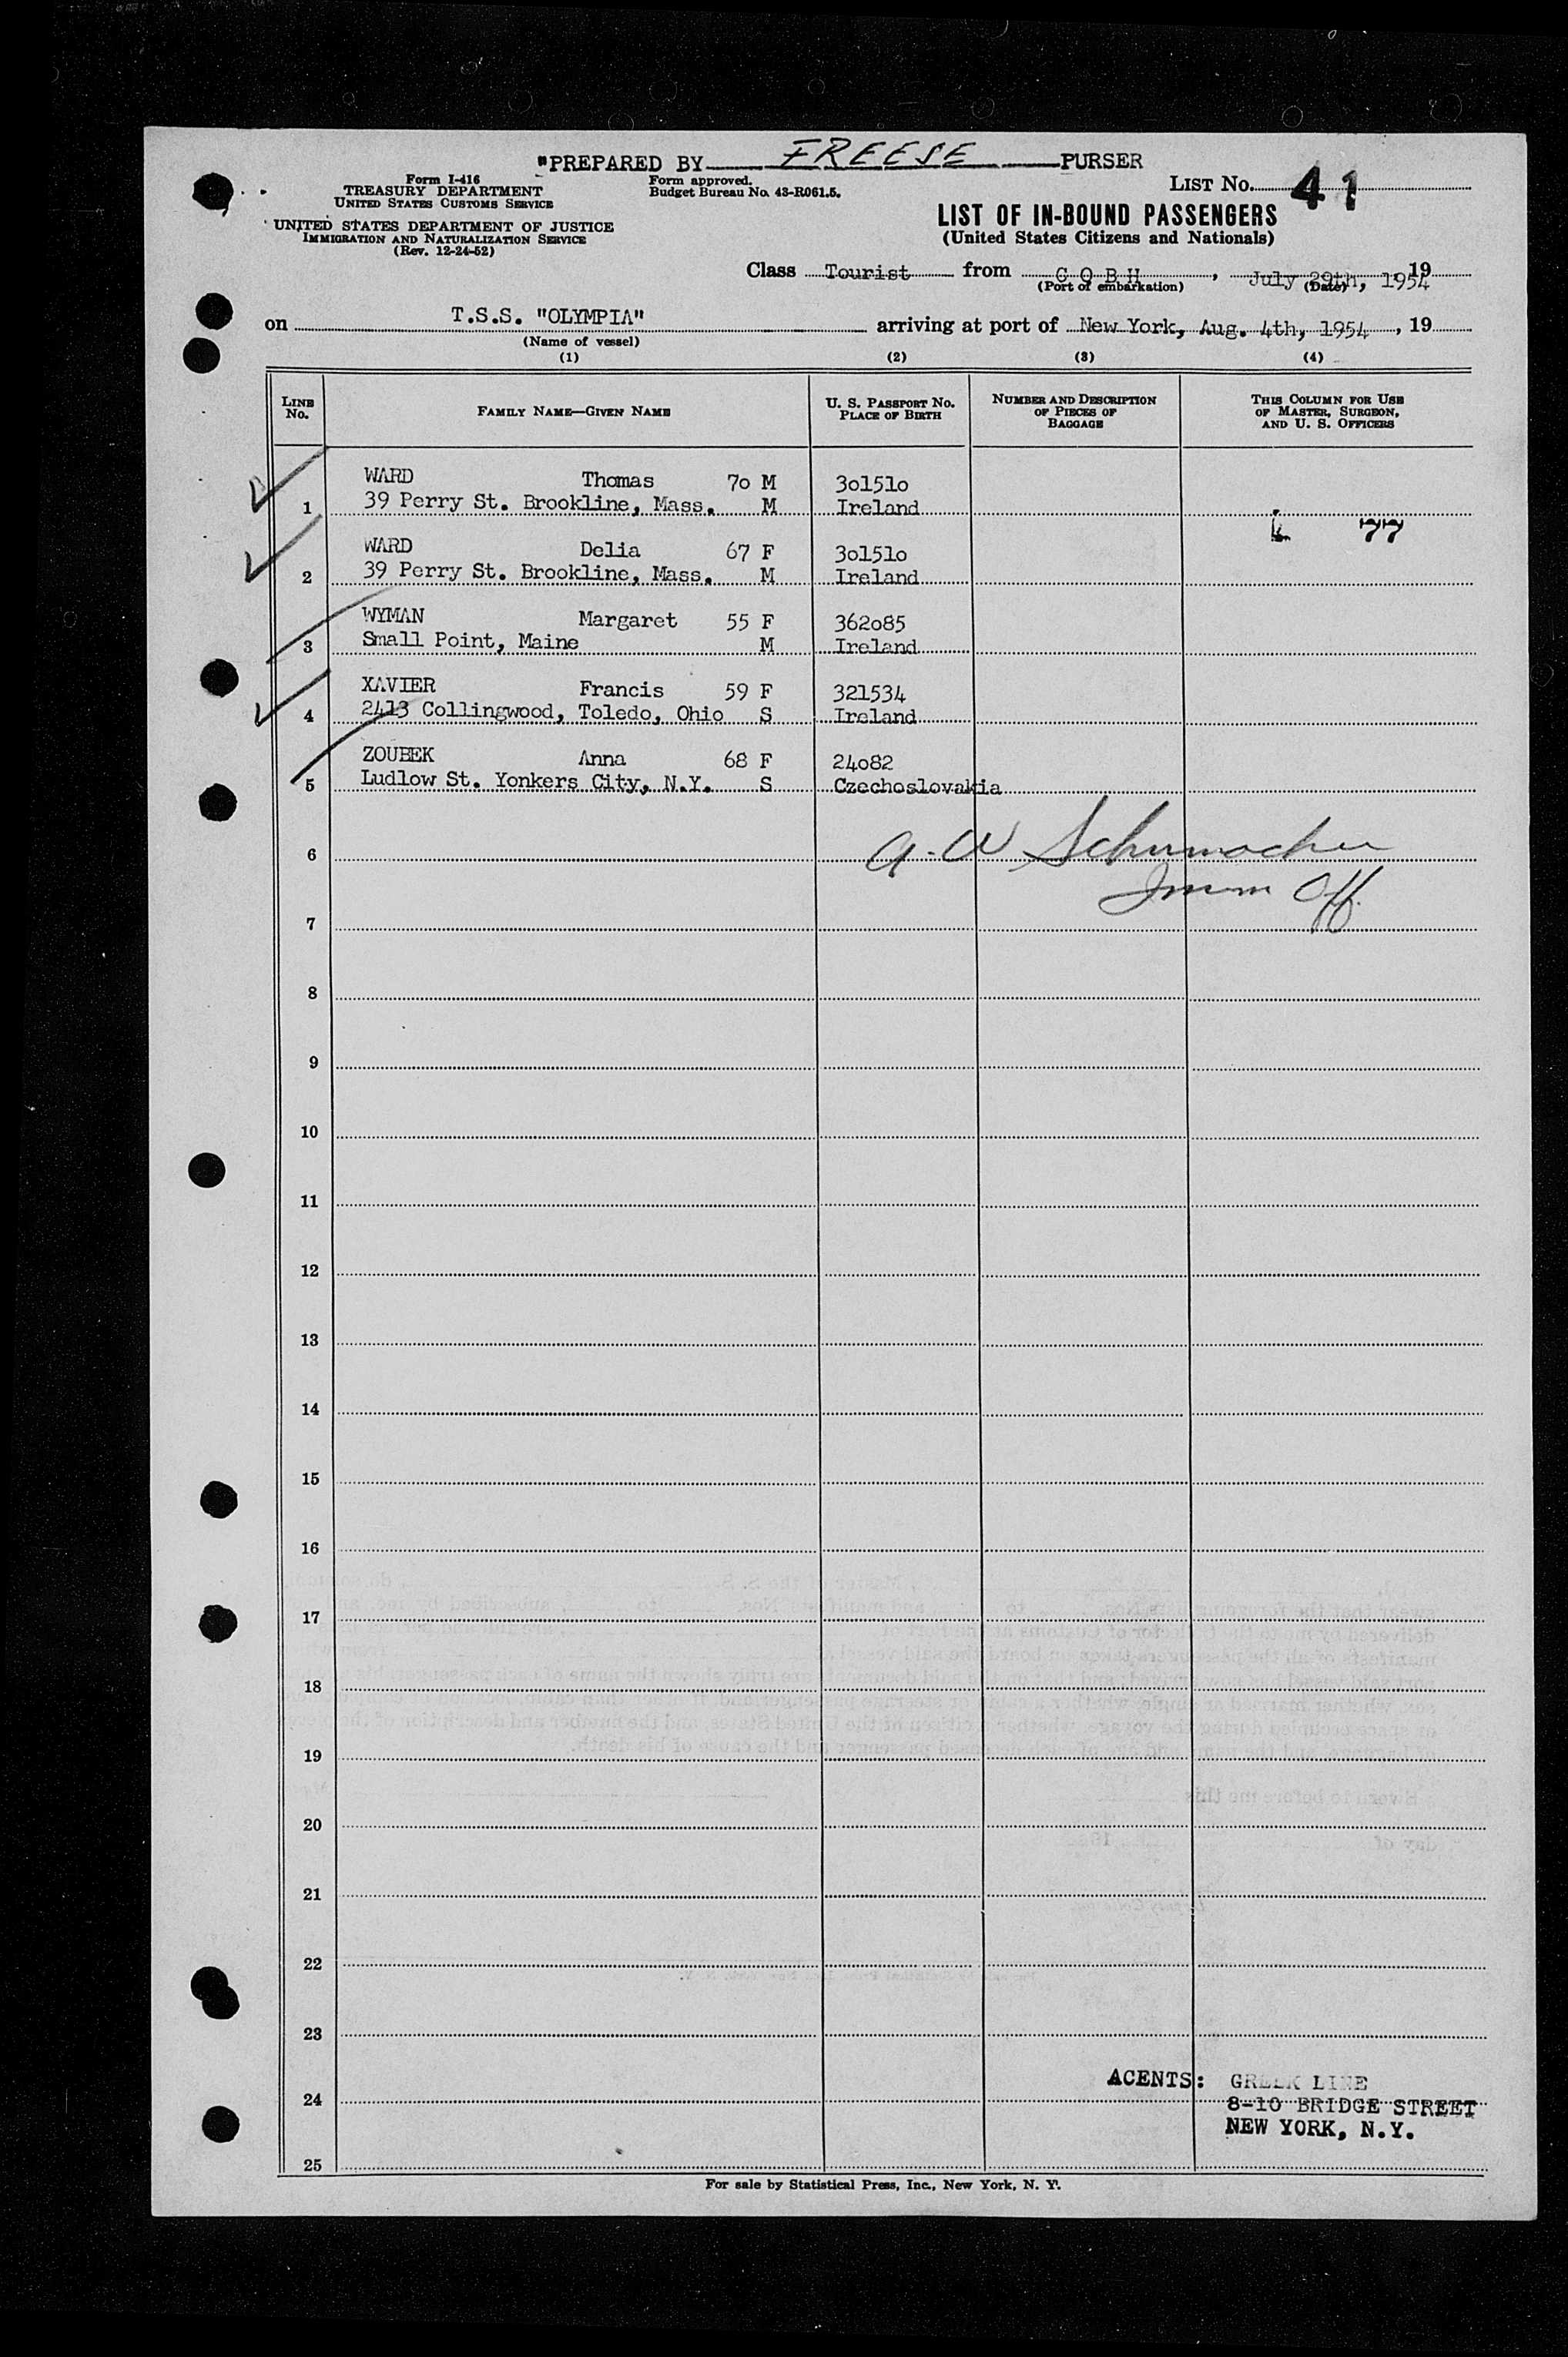 "PREPARED BY FREESE PURSER
Form I-416
TREASURY DEPARTMENT
UNITED STATES CUSTOMS SERVICE
UNITED STATES DEPARTMENT OF JUSTICE
IMMIGRATION AND NATURALIZATION SERVICE
(Rev. 12-24-52)
Form approved.
Budget Bureau No. 43-R061.5.
LIST No. 41
LIST OF IN-BOUND PASSENGERS
(United States Citizens and Nationals)
Class Tourist from C O B H, July 29th, 1954 19
(Port of embarkation) (Date)
on T.S.S. "OLYMPIA" arriving at port of New York, Aug. 4th, 1954, 19
(Name of vessel)
(1) (2) (3) (4)
LINE No. FAMILY NAME—GIVEN NAME U. S. PASSPORT No. PLACE OF BIRTH NUMBER AND DESCRIPTION OF PIECES OF BAGGAGE THIS COLUMN FOR USE OF MASTER, SURGEON, AND U. S. OFFICERS
WARD Thomas 70 M 301510
1 39 Perry St. Brookline, Mass. M Ireland
77
WARD Delia 67 F 301510
2 39 Perry St. Brookline, Mass. M Ireland
WYMAN Margaret 55 F 362085
3 Small Point, Maine M Ireland
XAVIER Francis 59 F 321534
4 2413 Collingwood, Toledo, Ohio S Ireland
ZOUBEK Anna 68 F 24082
5 Ludlow St. Yonkers City, N.Y. S Czechoslovakia
6 A. W Schumacher
Imm Off.
7
8
9
10
11
12
13
14
15
16
17
18
19
20
21
22
23
AGENTS: GREEK LINE
24 8-10 BRIDGE STREET
NEW YORK, N.Y.
25
For sale by Statistical Press, Inc., New York, N. Y.